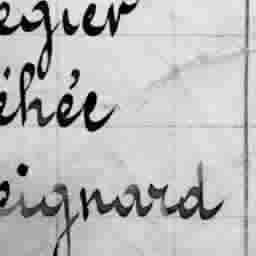 egier
éhée
eignard